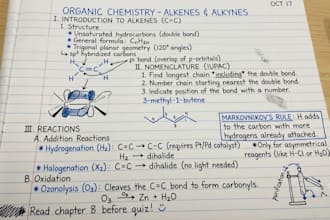 OCT 17
ORGANIC CHEMISTRY - ALKENES & ALKYNES
I. INTRODUCTION TO ALKENES (C=C)
1. Structure
• Unsaturated hydrocarbons (double bond)
• General formula: CₙH₂ₙ
• Trigonal planar geometry (120° angles)
↳ sp² hybridized carbons
pi bond (overlap of p-orbitals)
C=C
II. NOMENCLATURE (IUPAC)
1. Find longest chain *including* the double bond.
2. Number chain starting nearest the double bond.
3. Indicate position of the bond with a number.
3-methyl-1-butene
MARKOVNIKOV'S RULE: H adds
to the carbon with more
hydrogens already attached.
III. REACTIONS
A. Addition Reactions
• Hydrogenation (H₂): C=C → C-C (requires Pt/Pd catalyst)
H₂ → dihalide
• Only for asymmetrical
reagents (like H-Cl or H₂O)
• Halogenation (X₂): C=C → dihalide (no light needed)
B. Oxidation
• Ozonolysis (O₃): Cleaves the C=C bond to form carbonyls.
O₃ → O₃ Zn + H₂O
Read chapter 8 before quiz!